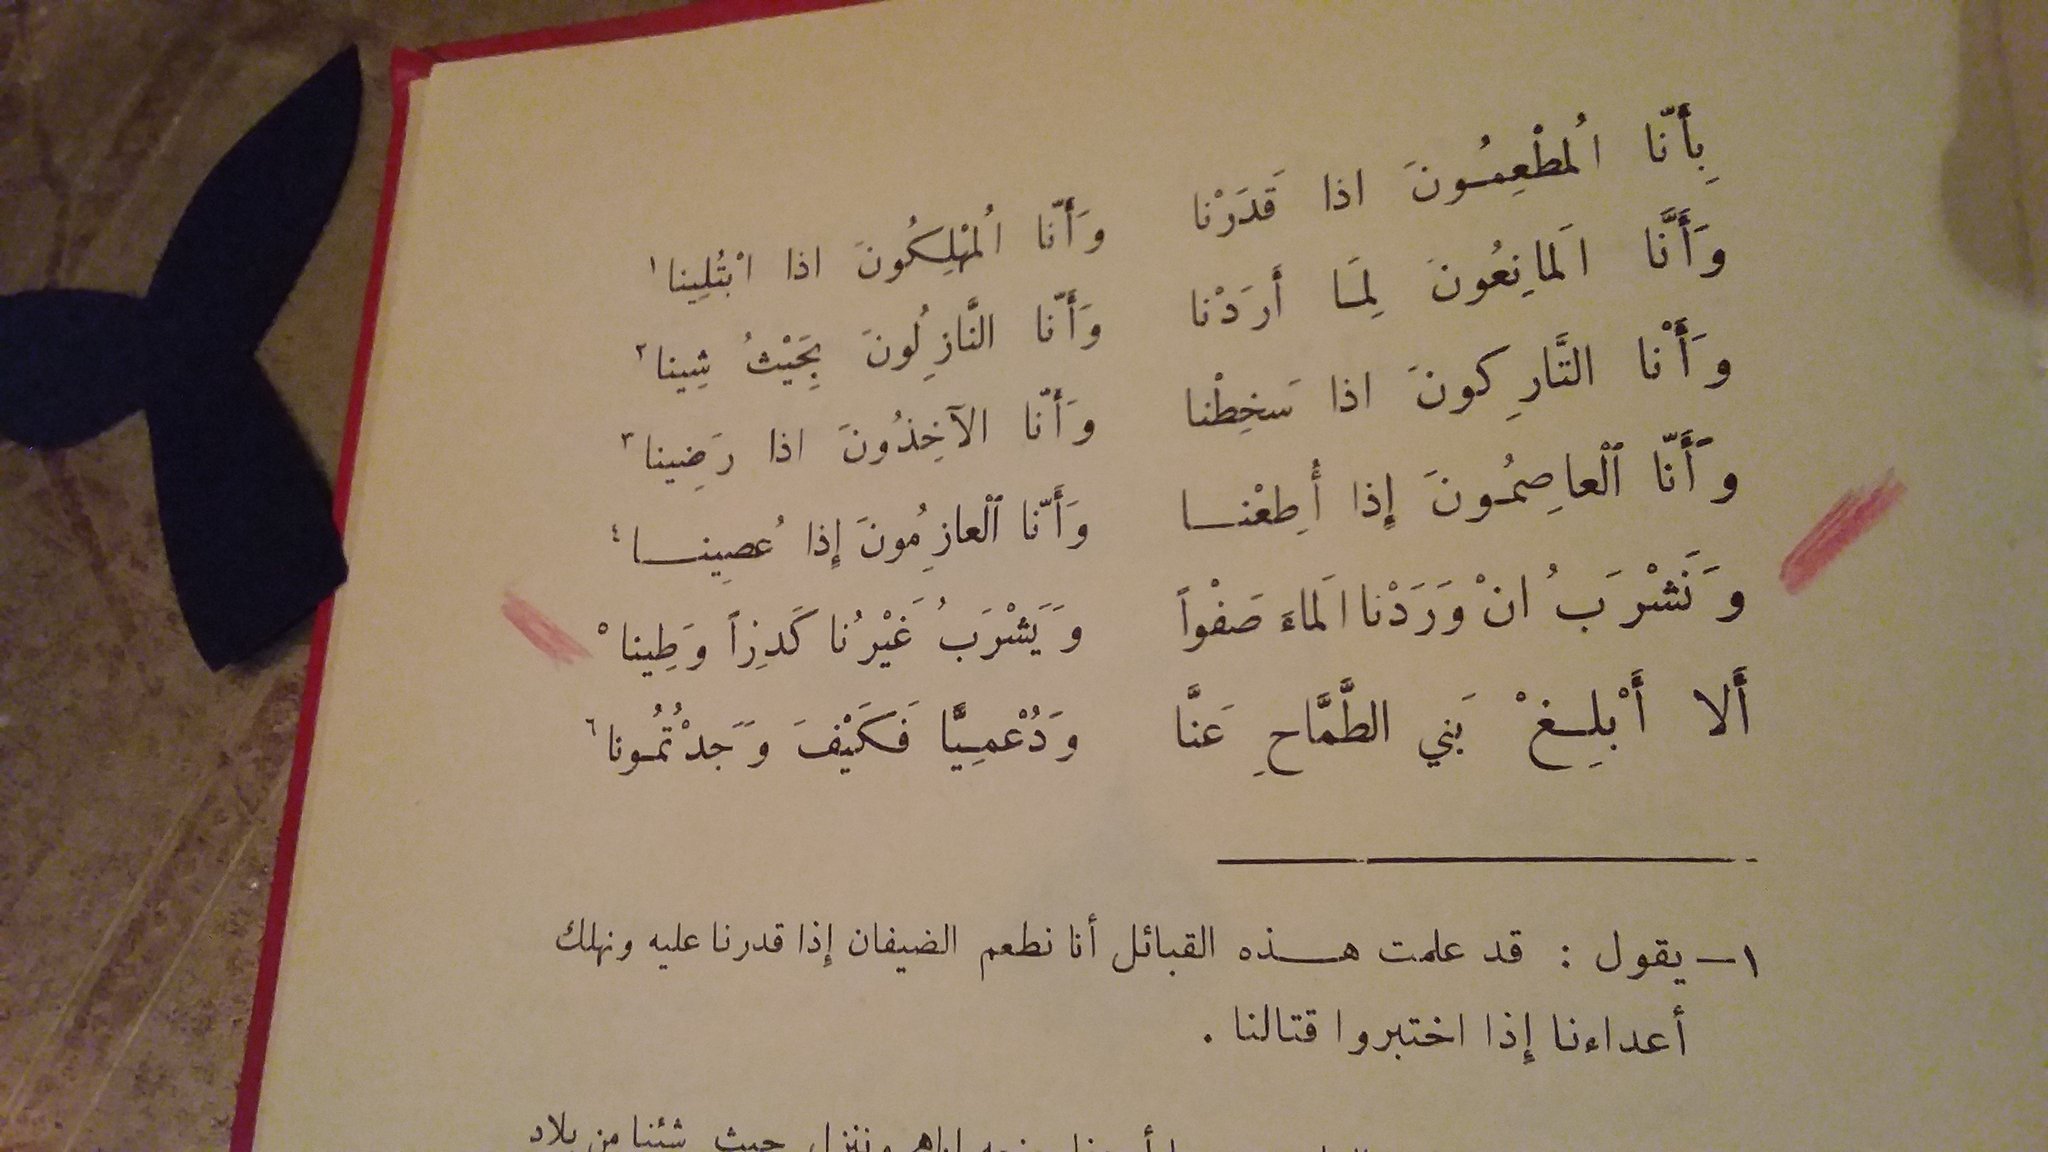 بِأَنّا المُطْعِمُونَ اذا قَدَرْنا وَأَنّا المُهْلِكُونَ اذا ابْتُلِينا ١
وَأَنَّا المَانِعُونَ لِمَا أَرَدْنا وَأَنّا النَّازِلُونَ بِحَيْثُ شِينا ٢
وَأَنْا التَّارِكونَ اذا سَخِطْنا وَأَنّا الآخِذُونَ اذا رَضِينا ٣
وَأَنّا ٱلْعاصِمُونَ إِذا أُطِعْنا وَأَنّا ٱلْعازِمُونَ إِذا عُصِينا ٤
وَنَشْرَبُ انْ وَرَدْنا المَاءَ صَفْواً وَيَشْرَبُ غَيْرُنا كَدِراً وَطِينا ٥
أَلا أَبْلِغْ بَني الطَّمَّاحِ عَنَّا وَدُعْمِيًّا فَكَيْفَ وَجَدْتُمُونا ٦
١ – يقول : قد علمت هذه القبائل أنا نطعم الضيفان إذا قدرنا عليه ونهلك
أعداءنا إذا اختبروا قتالنا .
وننزل حيث شئنا من بلاد